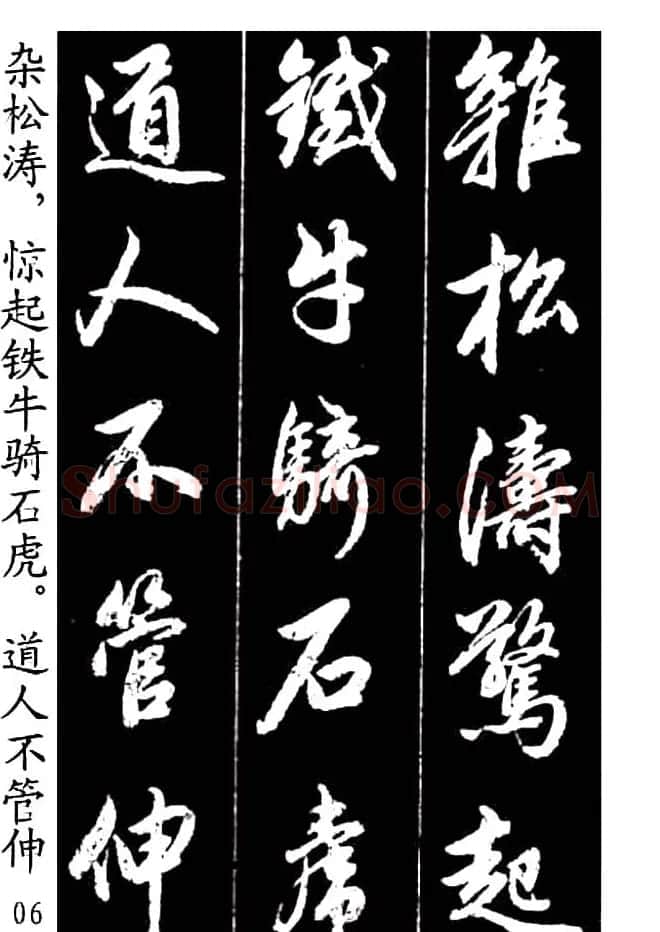 雜松濤驚起
鐵牛騎石虎
道人不管伸
杂松涛，惊起铁牛骑石虎。道人不管伸
06
Shufaziliao.com